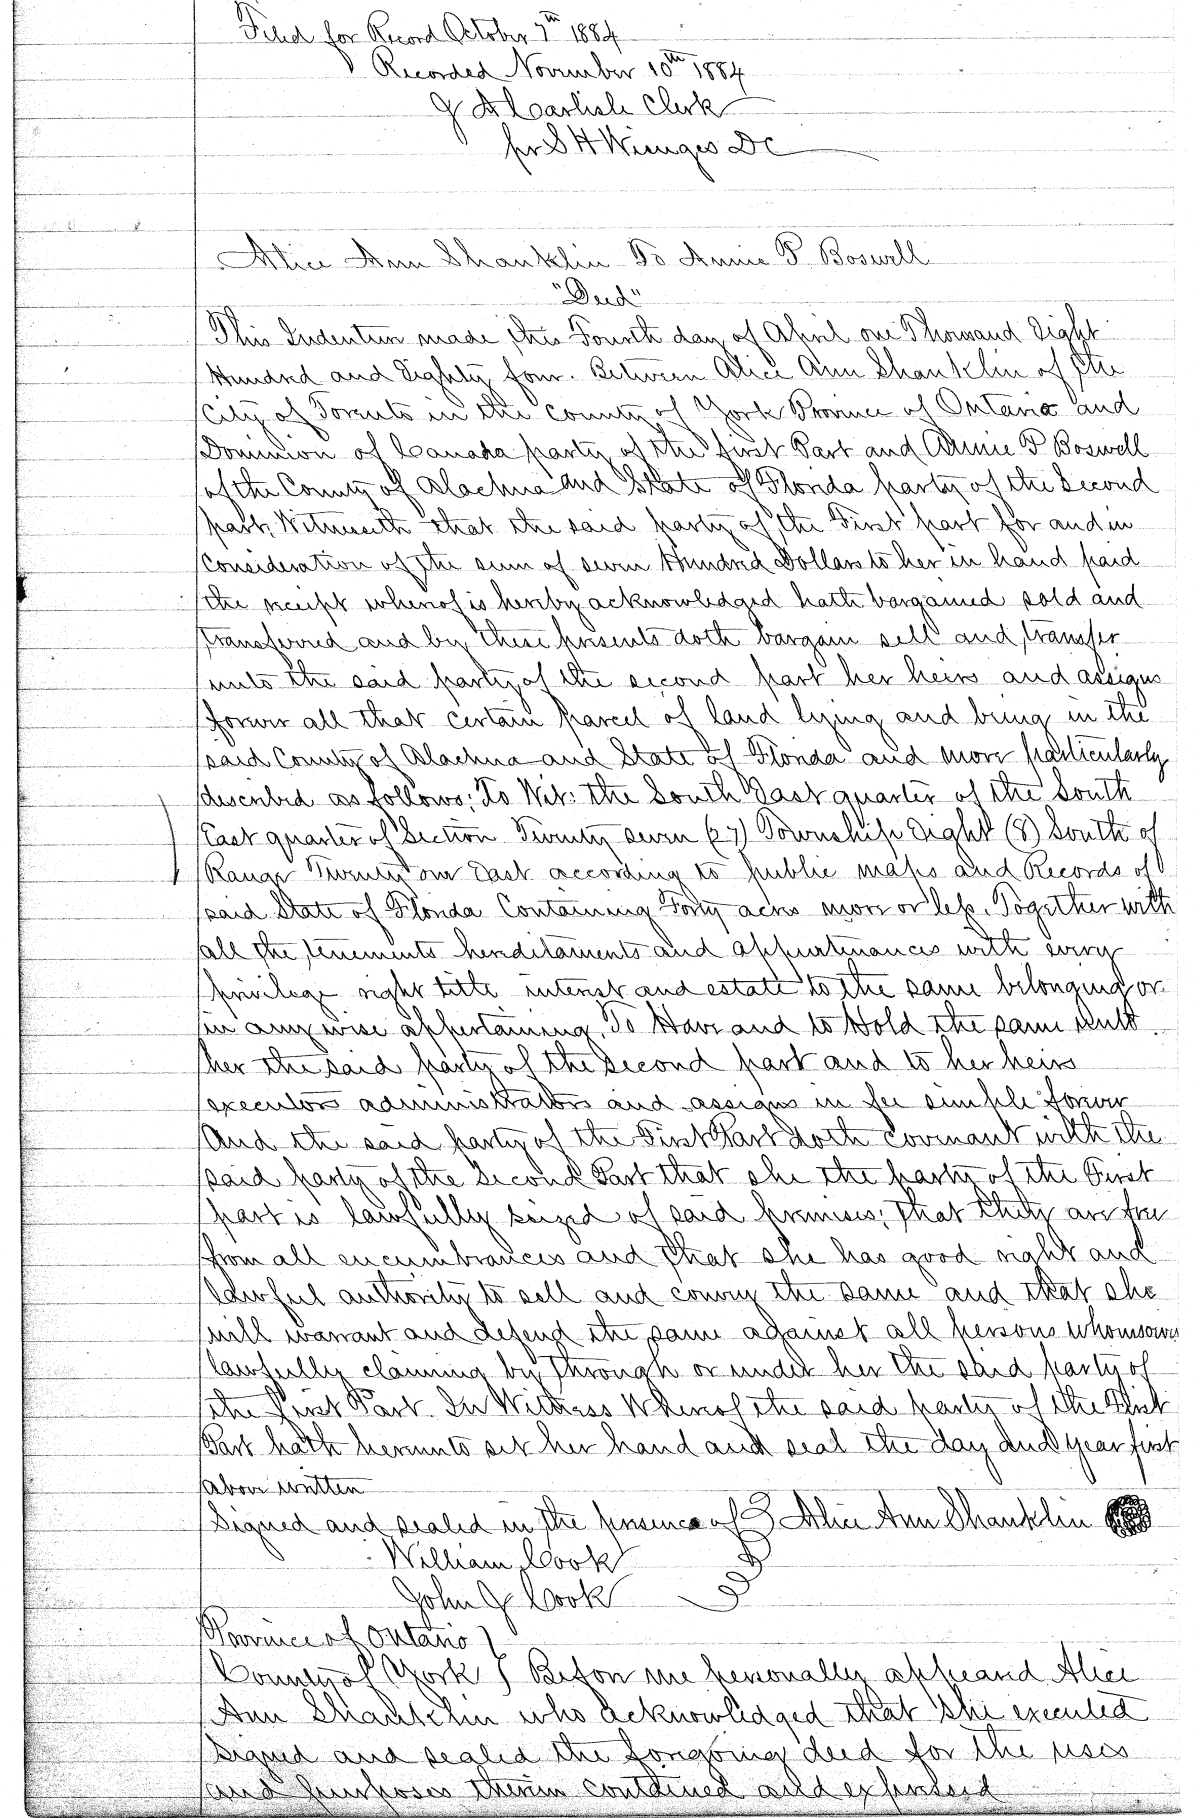 Filed for Record October 7th 1884
Recorded November 10th 1884
J A Carlisle Clerk
pr S H Wienges DC
Alice Ann Shanklin To Annie P. Boswell
"Deed"
This Indenture made this Fourth day of April one Thousand Eight
Hundred and Eighty four. Between Alice Ann Shanklin of the
City of Toronto in the County of York Province of Ontario and
Dominion of Canada party of the first Part and Annie P Boswell
of the County of Alachua and State of Florida party of the Second
part, Witnesseth that the said party of the First part for and in
Consideration of the sum of seven Hundred Dollars to her in hand paid
the receipt whereof is hereby acknowledged hath bargained sold and
transferred and by these presents doth bargain sell and transfer
unto the said party of the second part her heirs and assigns
forever all that certain parcel of land lying and being in the
said County of Alachua and State of Florida and more particularly
described as follows; To Wit: the South East quarter of the South
East quarter of Section Twenty seven (27) Township Eight (8) South of
Range Twenty one East according to public maps and Records of
said State of Florida Containing Forty acres more or less. Together with
all the tenements hereditaments and appurtenances with every
privilege right title interest and estate to the same belonging or
in any wise appertaining, To Have and to Hold the same unto
her the said party of the second part and to her heirs
executors administrators and assigns in fee simple forever
And the said party of the First Part doth covenant with the
said party of the Second Part that she the party of the First
part is lawfully seized of said premises; that they are free
from all encumbrances and that she has good right and
lawful authority to sell and convey the same and that she
will warrant and defend the same against all persons whomsoever
lawfully claiming by through or under her the said party of
the first Part. In Witness Whereof the said party of the First
Part hath hereunto set her hand and seal the day and year first
above written
Signed and sealed in the presence of } Alice Ann Shanklin
William Cook
John J Cook
Province of Ontario }
County of York } Before me personally appeared Alice
Ann Shanklin who acknowledged that she executed
signed and sealed the foregoing deed for the uses
and purposes therein contained and expressed